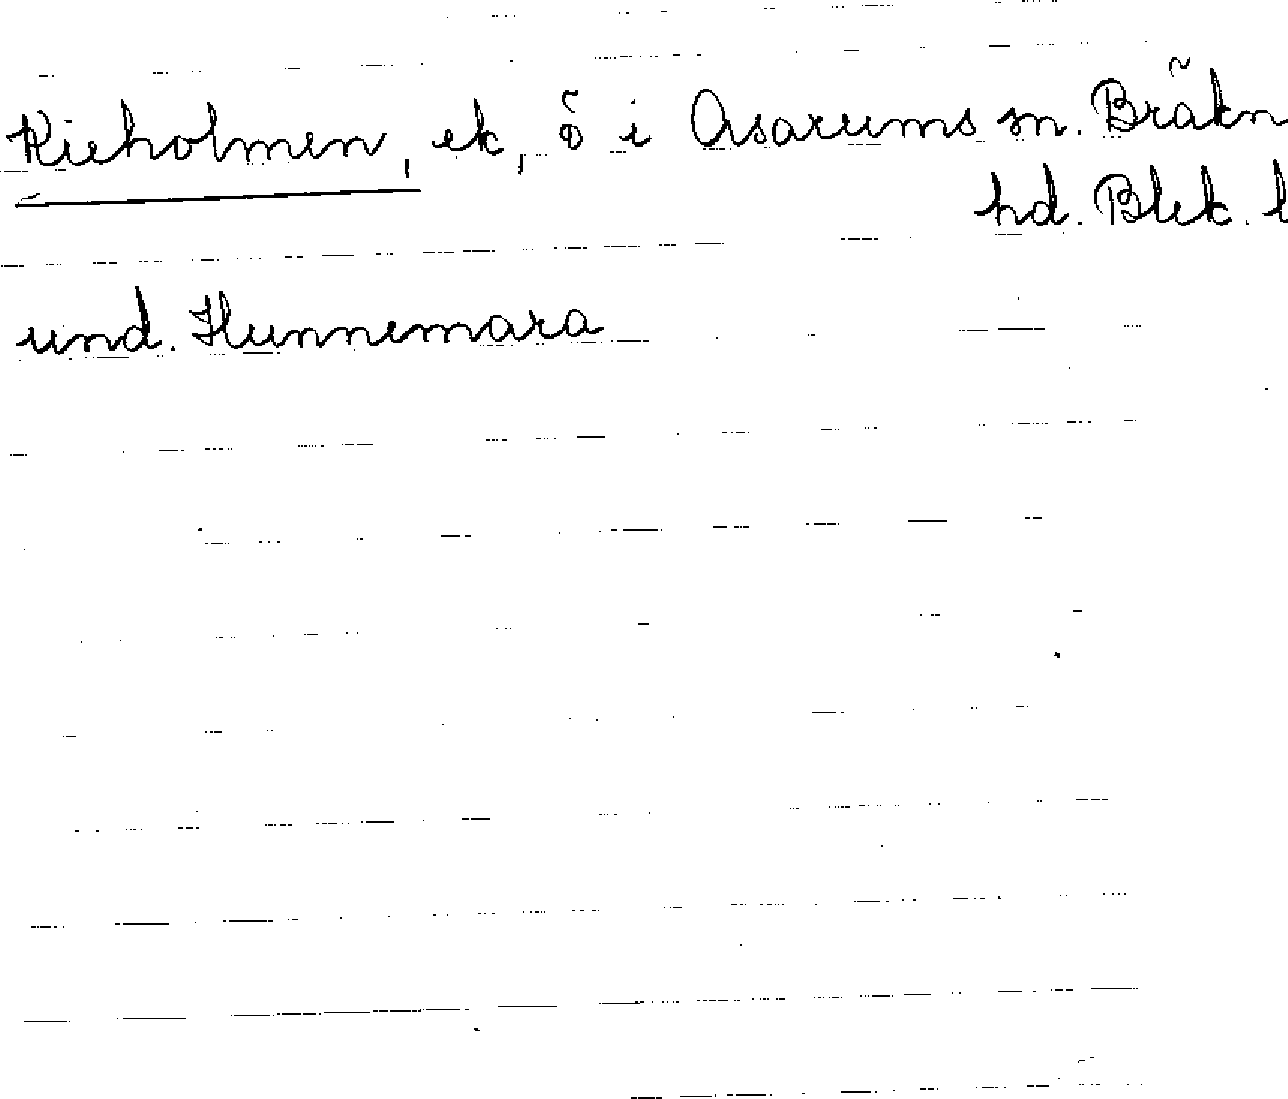 Kieholmen, ek, ö i Asarums sn. Bräkn
hd. Blek. l
und. Hunnemara